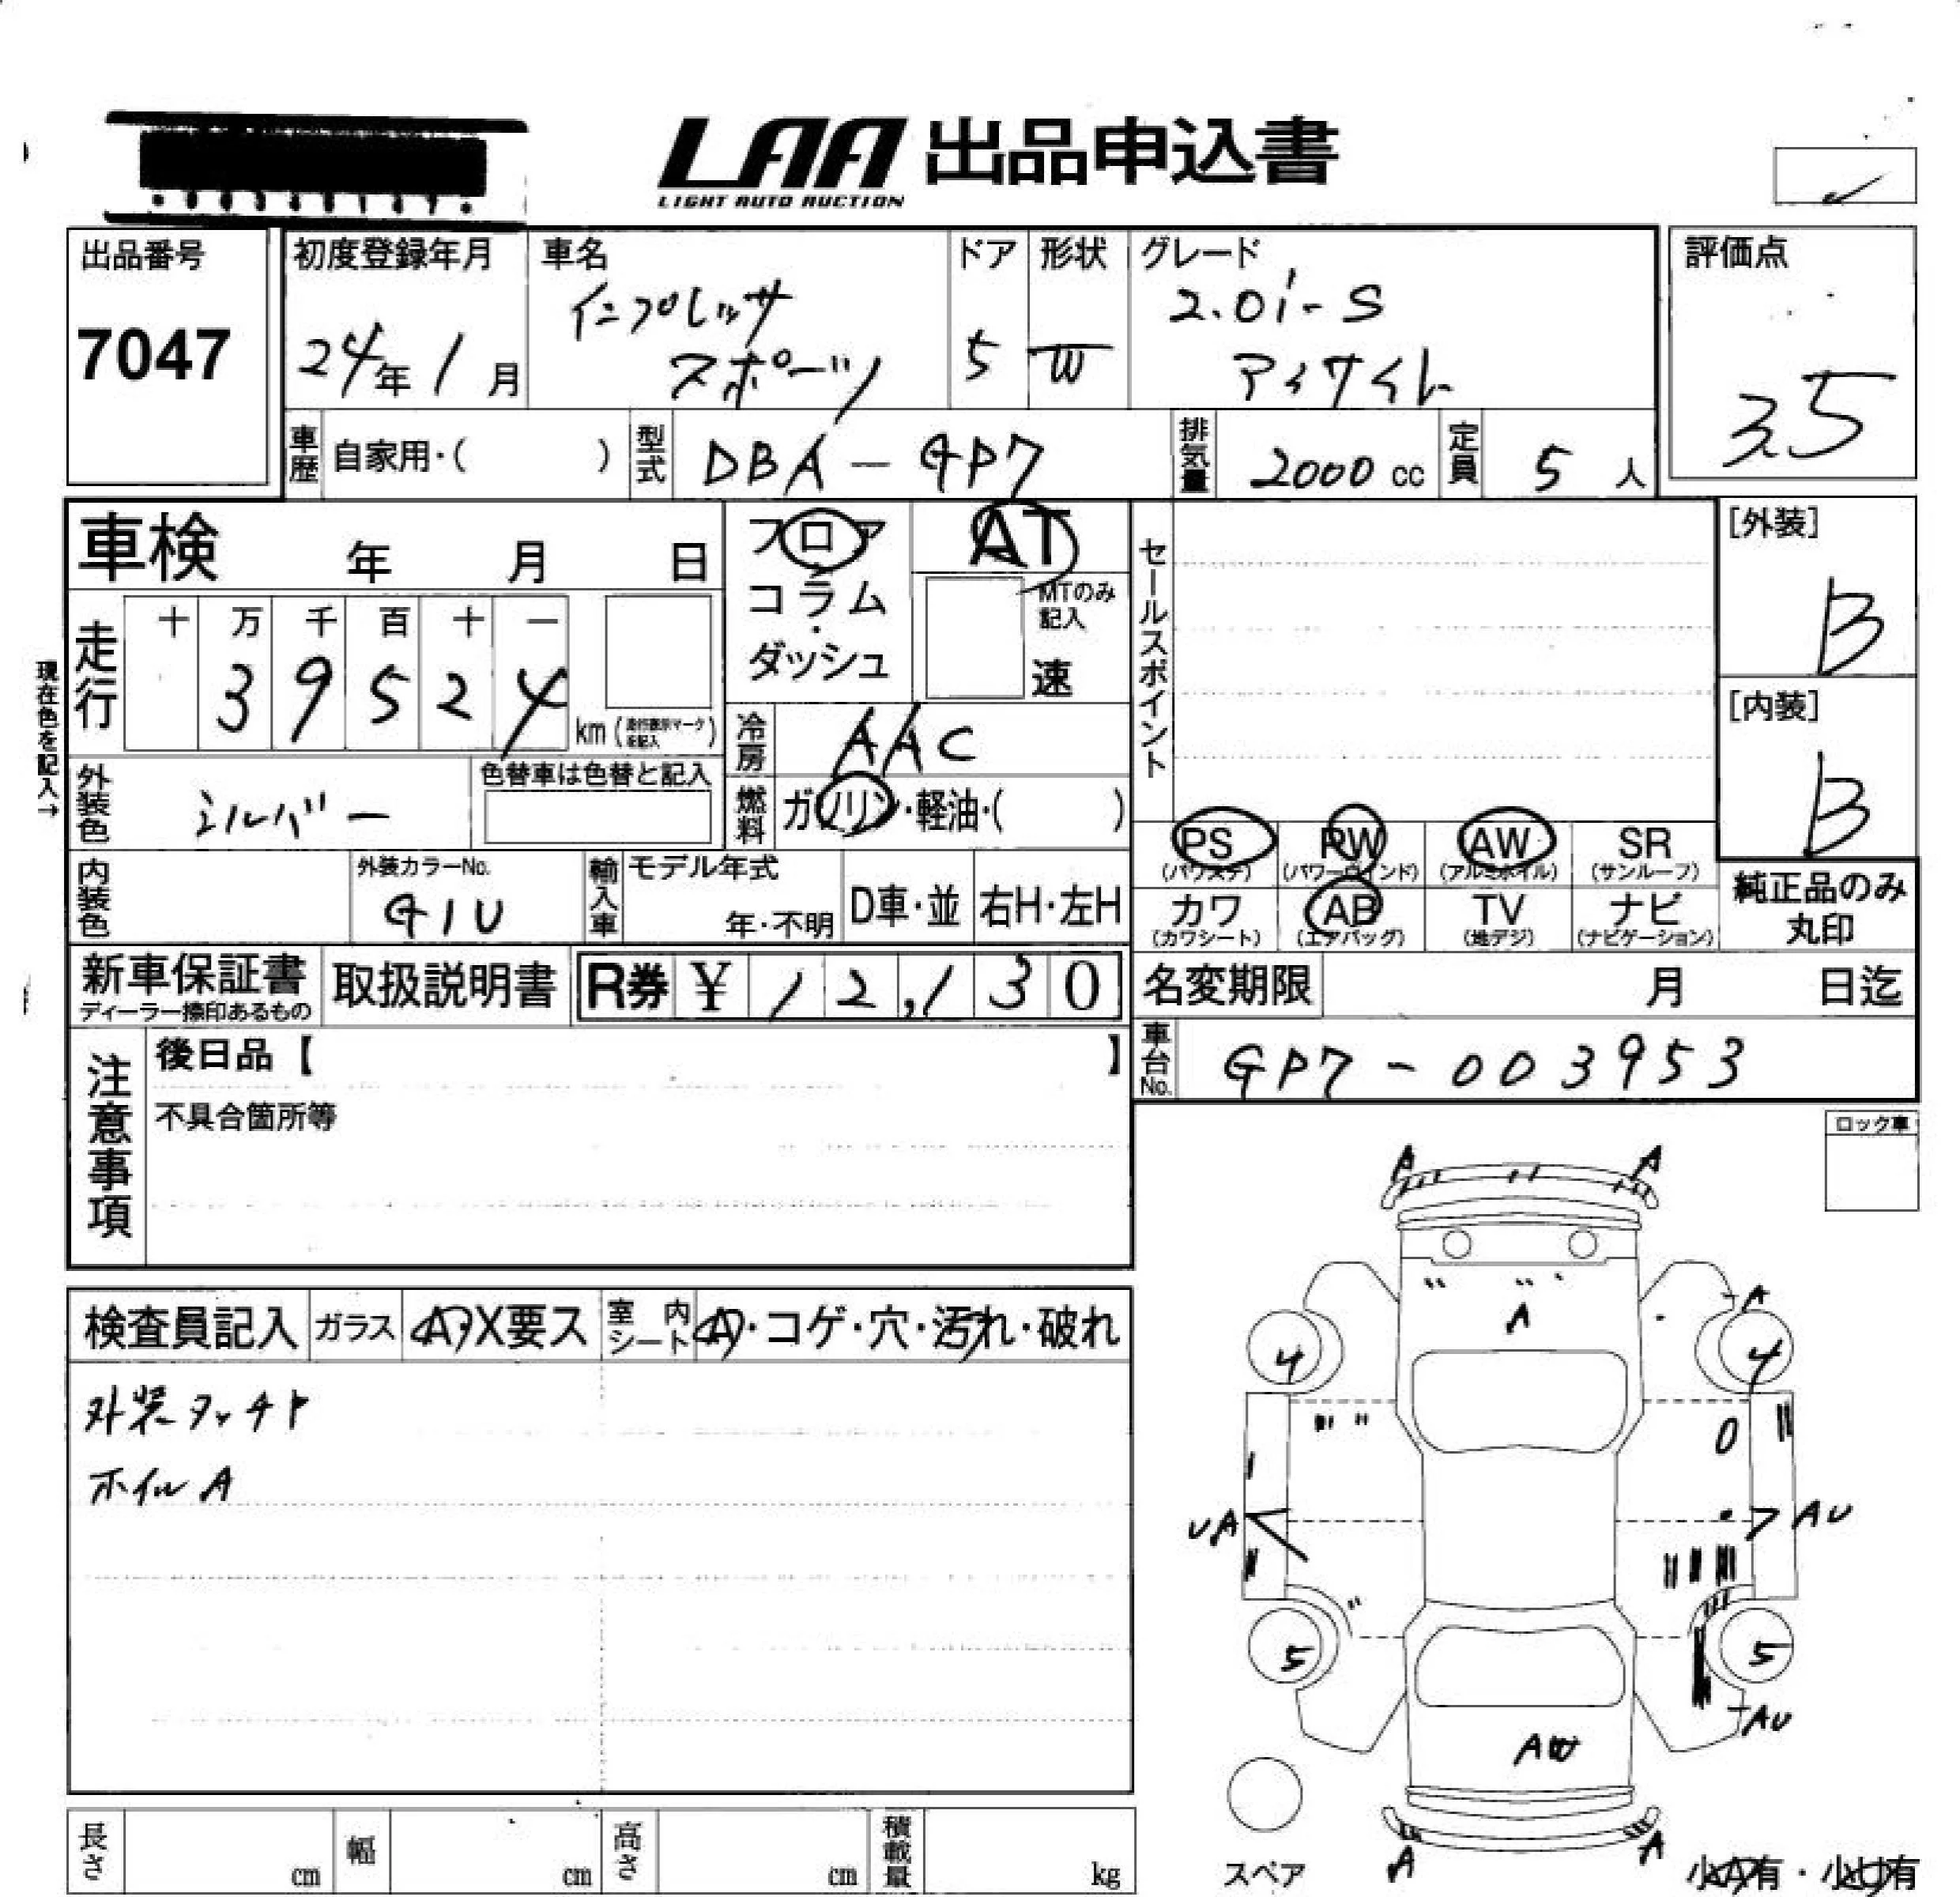 LAA 出品申込書
LIGHT AUTO AUCTION
出品番号 初度登録年月 車名 ドア 形状 グレード 評価点
7047 24年 1月 インプレッサ スポーツ 5 W 2.0i-S アイサイト 3.5
車歴 自家用・( ) 型式 DBA-GP7 排気量 2000 cc 定員 5 人
車検 年 月 日 フロア AT セールスポイント [外装]
コラム・ MTのみ記入 B
十 万 千 百 十 一 ダッシュ 速
走行 3 9 5 2 4 km ( 走行表示マークを記入 ) [内装]
現在色を記入→ 冷房 AAC B
外装色 シルバー 色替車は色替と記入 燃料 ガソリン・軽油・( )
PS (パワステ) PW (パワーウインド) AW (アルミホイル) SR (サンルーフ)
内装色 外装カラーNo. G1U 輸入車 モデル年式 年・不明 D車・並 右H・左H
カワ (カワシート) AB (エアバッグ) TV (地デジ) ナビ (ナビゲーション) 純正品のみ丸印
新車保証書 取扱説明書 R券 ¥ 12,130 名変期限 月 日迄
ディーラー捺印あるもの
車台No. GP7-003953
注意事項 後日品【 】
不具合箇所等
ロック車
検査員記入 ガラス A・X要ス 室内シート A・コゲ・穴・汚れ・破れ
外装タッチト
ホイルA
A A
A A
4 4
0
UA AU
5 5
AU
AW
A A
長さ cm 幅 cm 高さ cm 積載量 kg
スペア 小A有・小U有